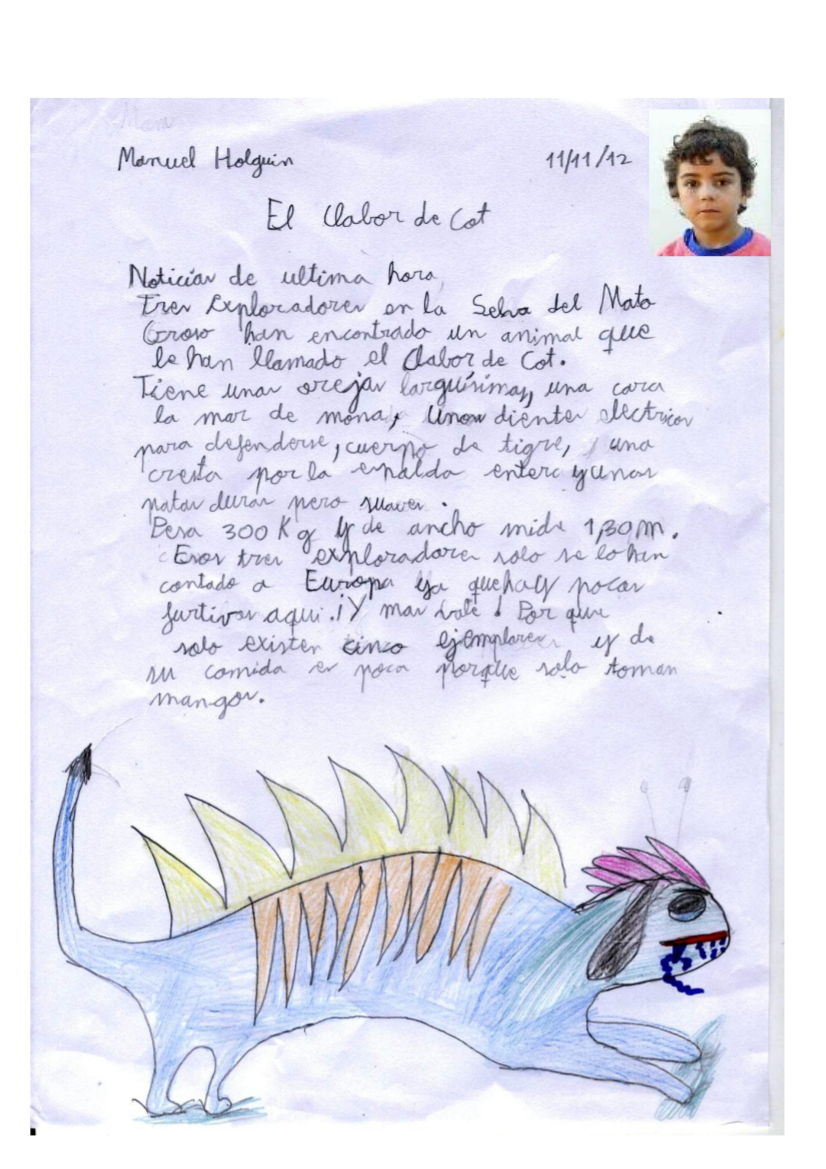 Manuel Holguin
11/11/12
El Clabor de Cot
Noticias de ultima hora
Tres Exploradores en la Selva del Mato
Groso han encontrado un animal que
le han llamado el Clabor de Cot.
Tiene unas orejas larguísimas, una cara
la mar de mona, Unos dientes electricos
para defenderse, cuerpo de tigre, una
cresta por la espalda entera y unas
patas duras pero suaves.
Pesa 300 Kg y de ancho mide 1,30 m.
Esos tres exploradores solo se lo han
contado a Europa ya que hay pocos
furtivos aqui. ¡Y mas vale! Por que
solo existen cinco ejemplares y de
su comida es poca porque solo toman
mangos.